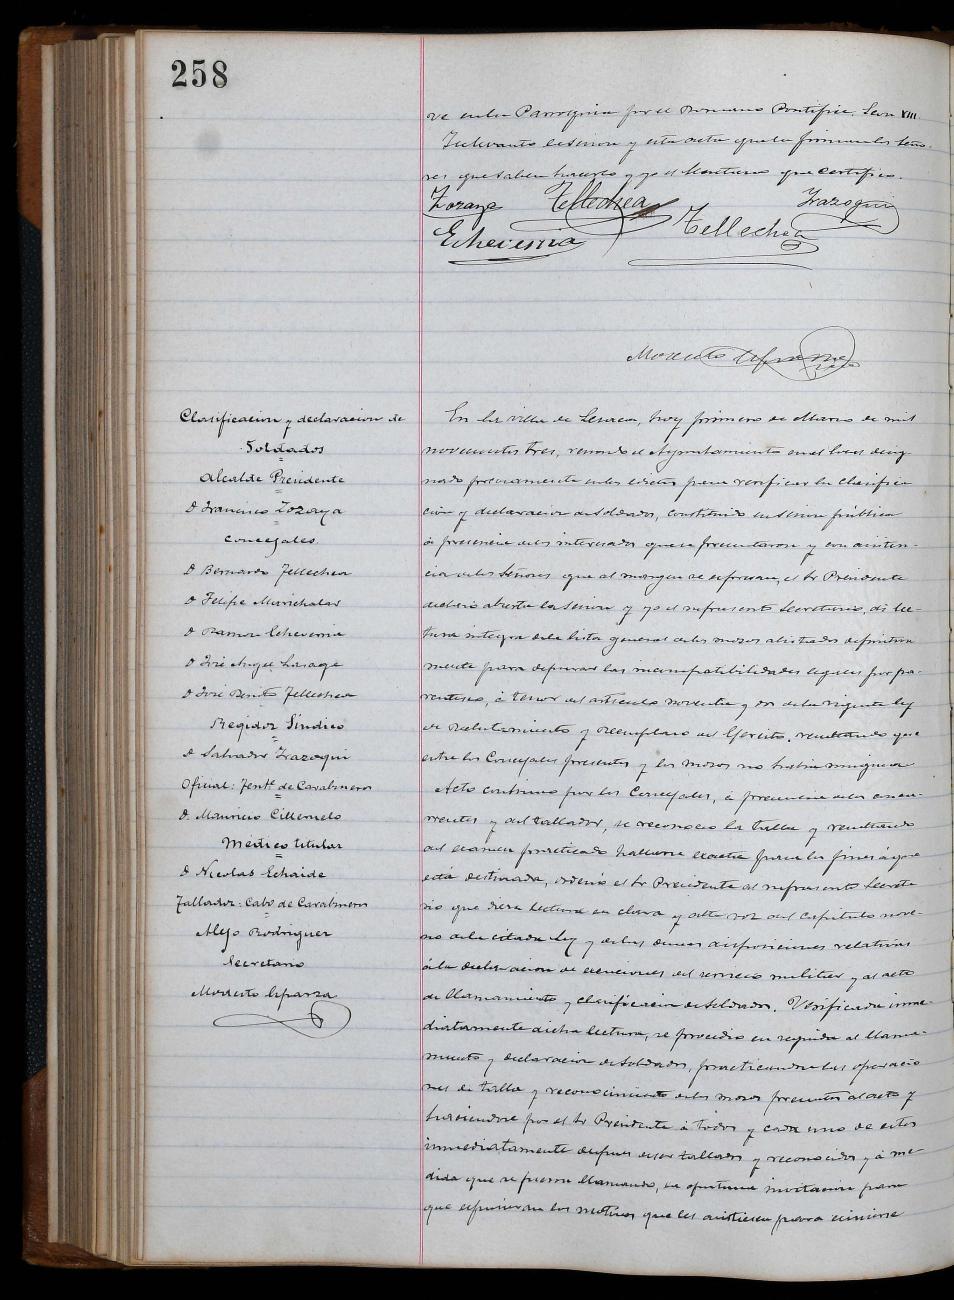 258
va en la Parroquia por el Romano Pontífice León XIII.
Se levanta la sesion y esta acta que la firman los Seño-
res que saben hacerlo y yo el Secretario que certifico.
Zozaya Tellechea Irazoqui
Echeverria Tellechea
Modesto Esparza
Clasificacion y declaracion de
Soldados
Alcalde Presidente
D Francisco Zozaya
Concejales
D Bernardo Tellechea
D Felipe Marichalar
D Ramon Echeverria
D José Angel Lasaga
D José Benito Tellechea
Regidor Síndico
D Salvador Irazoqui
Oficial: Tente de Carabineros
D. Mauricio Cilleruelo
Médico titular
D Nicolas Echaide
Tallador: Cabo de Carabineros
Alejo Rodriguez
Secretario
Modesto Esparza
En la villa de Lesaca, hoy primero de Marzo de mil
novecientos tres, reunido el Ayuntamiento en el local desig-
nado previamente en los edictos para verificar la clasifica-
ción y declaracion de soldados, constituido en sesion pública
á presencia de los interesados que se presentaron y con asisten-
cia de los Señores que al margen se expresan, el Sr Presidente
declaró abierta la sesion y yo el infrascrito Secretario, dí lec-
tura integra de la lista general de los mozos alistados definitiva
mente para depurar las incompatibilidades legales por pa-
rentesco, á tenor del artículo noventa y dos de la vigente ley
de Reclutamiento y Reemplazo del Ejército, resultando que
entre los Concejales presentes y los mozos no habia ninguna
Acto continuo por los Concejales, á presencia de los concu-
rrentes y del tallador, se reconoció la talla y resultando
del examen practicado hallarse exacta para los fines á que
está destinada, ordenó el Sr Presidente al infrascrito Secreta
rio que diera lectura en clara y alta voz del Capítulo nove-
no de la citada ley y de las demas disposiciones relativas
á la declaracion de exenciones del servicio militar y al acto
de llamamiento y clasificacion de soldados. Verificada inme-
diatamente dicha lectura, se procedió en seguida al llama-
miento y declaracion de Soldados, practicandose las operacio
nes de talla y reconocimiento de los mozos presentes al acto y
haciendose por el Sr Presidente á todos y cada uno de estos
inmediatamente despues de ser tallados y reconocidos y á me-
dida que se fueron llamando, la oportuna invitacion para
que expusieran los motivos que les asistiesen para eximirse